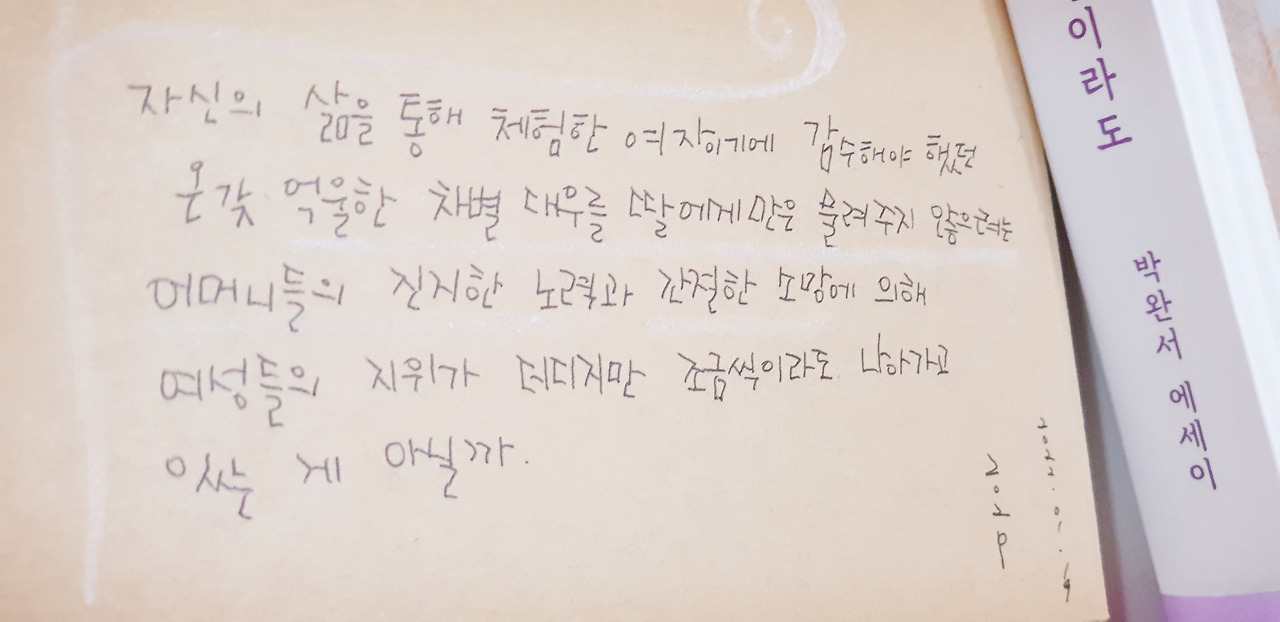 자신의 삶을 통해 체험한 여자이기에 감수해야 했던
온갖 억울한 차별 대우를 딸에게만은 물려주지 않으려는
어머니들의 진지한 노력과 간절한 소망에 의해
여성들의 지위가 더디지만 조금씩이라도 나아가고
있는 게 아닐까.
202p
2022.01.19
이라도
박완서 에세이